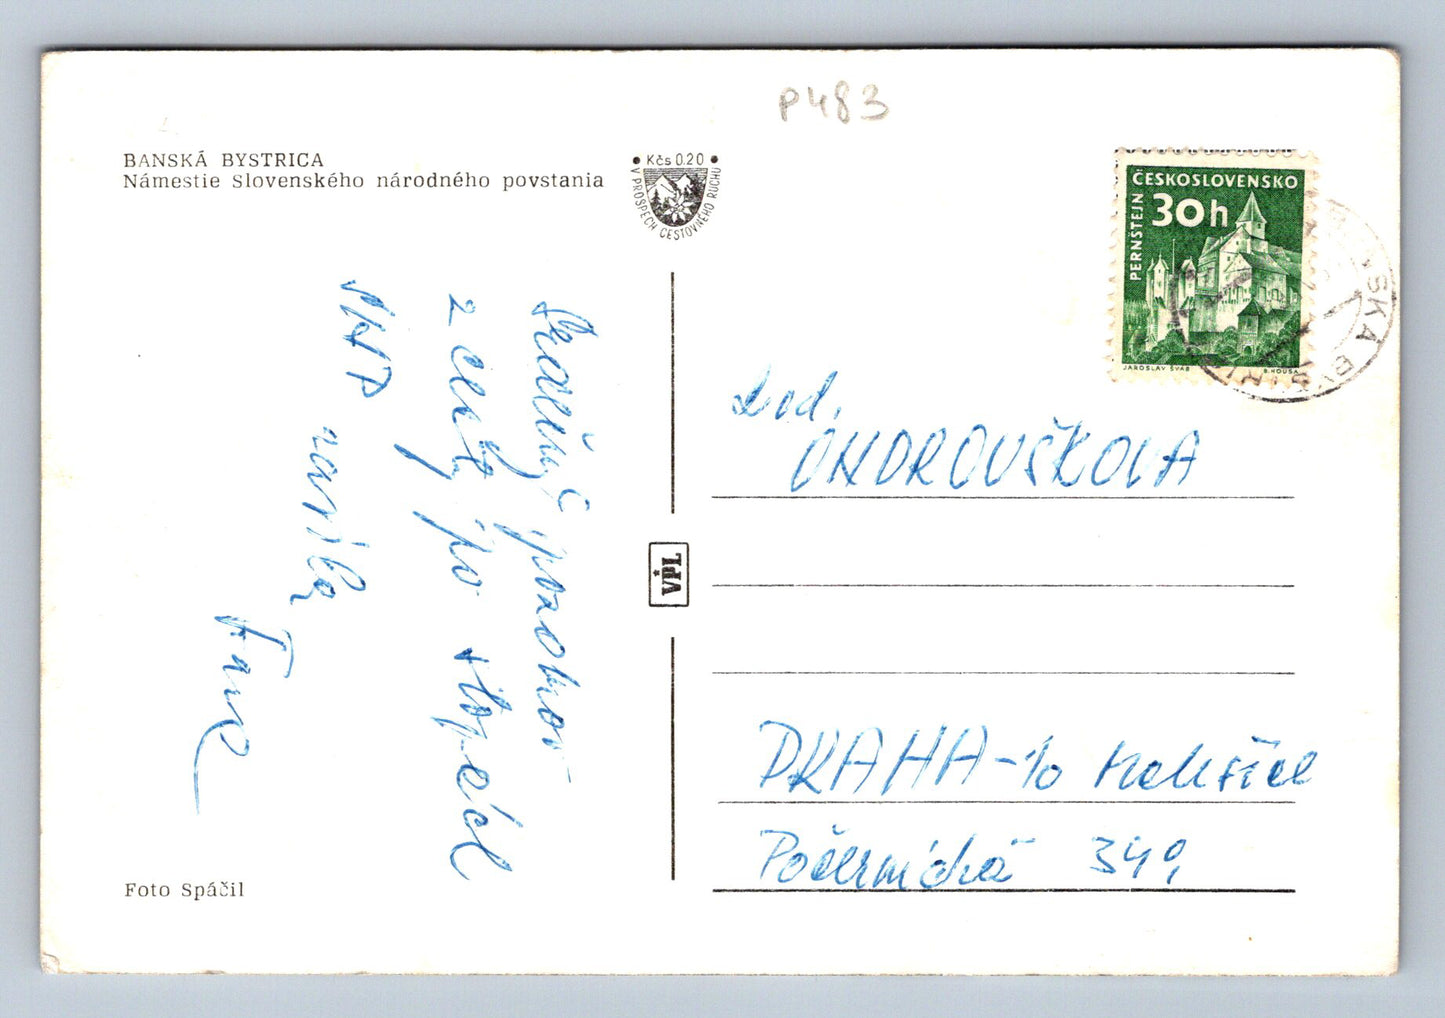 P483
BANSKÁ BYSTRICA
Námestie Slovenského národného povstania
Kčs 0.20
V PROSPECH CESTOVNÉHO RUCHU
ČESKOSLOVENSKO
30h
PERNŠTEJN
JAROSLAV ŠVÁB
B. HOUSA
SKÁ BYSTRI
Srdečný pozdrav
z cesty po stopách
SNP
VPL
ONDROUŠKOVA
PRAHA-10 Malešice
Počernická 349,
Foto Spáčil